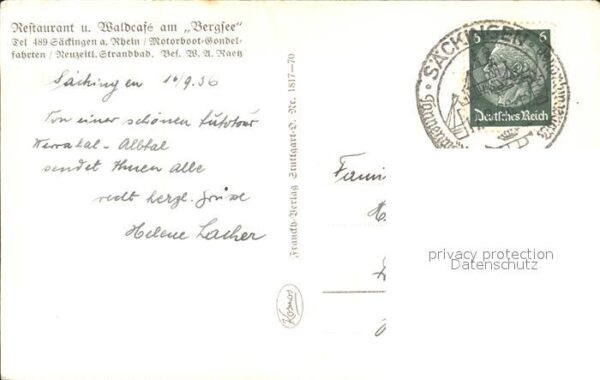 Restaurant u. Waldcafé am „Bergsee"
Tel 489 Säckingen a. Rhein / Motorboot-Gondel-
fahrten / Neuzeitl. Strandbad. Bes. W. A. Raetz
Säckingen 16/9.36
Von einer schönen Autotour
Werratal - Albtal
sendet Ihnen alle
recht herzl. Grüße
Helene Lacher
Franckh-Verlag Stuttgart-O. Nr. 1817-70
Kosmos
Fami
SÄCKINGEN
6 6
Deutsches Reich
privacy protection
Datenschutz